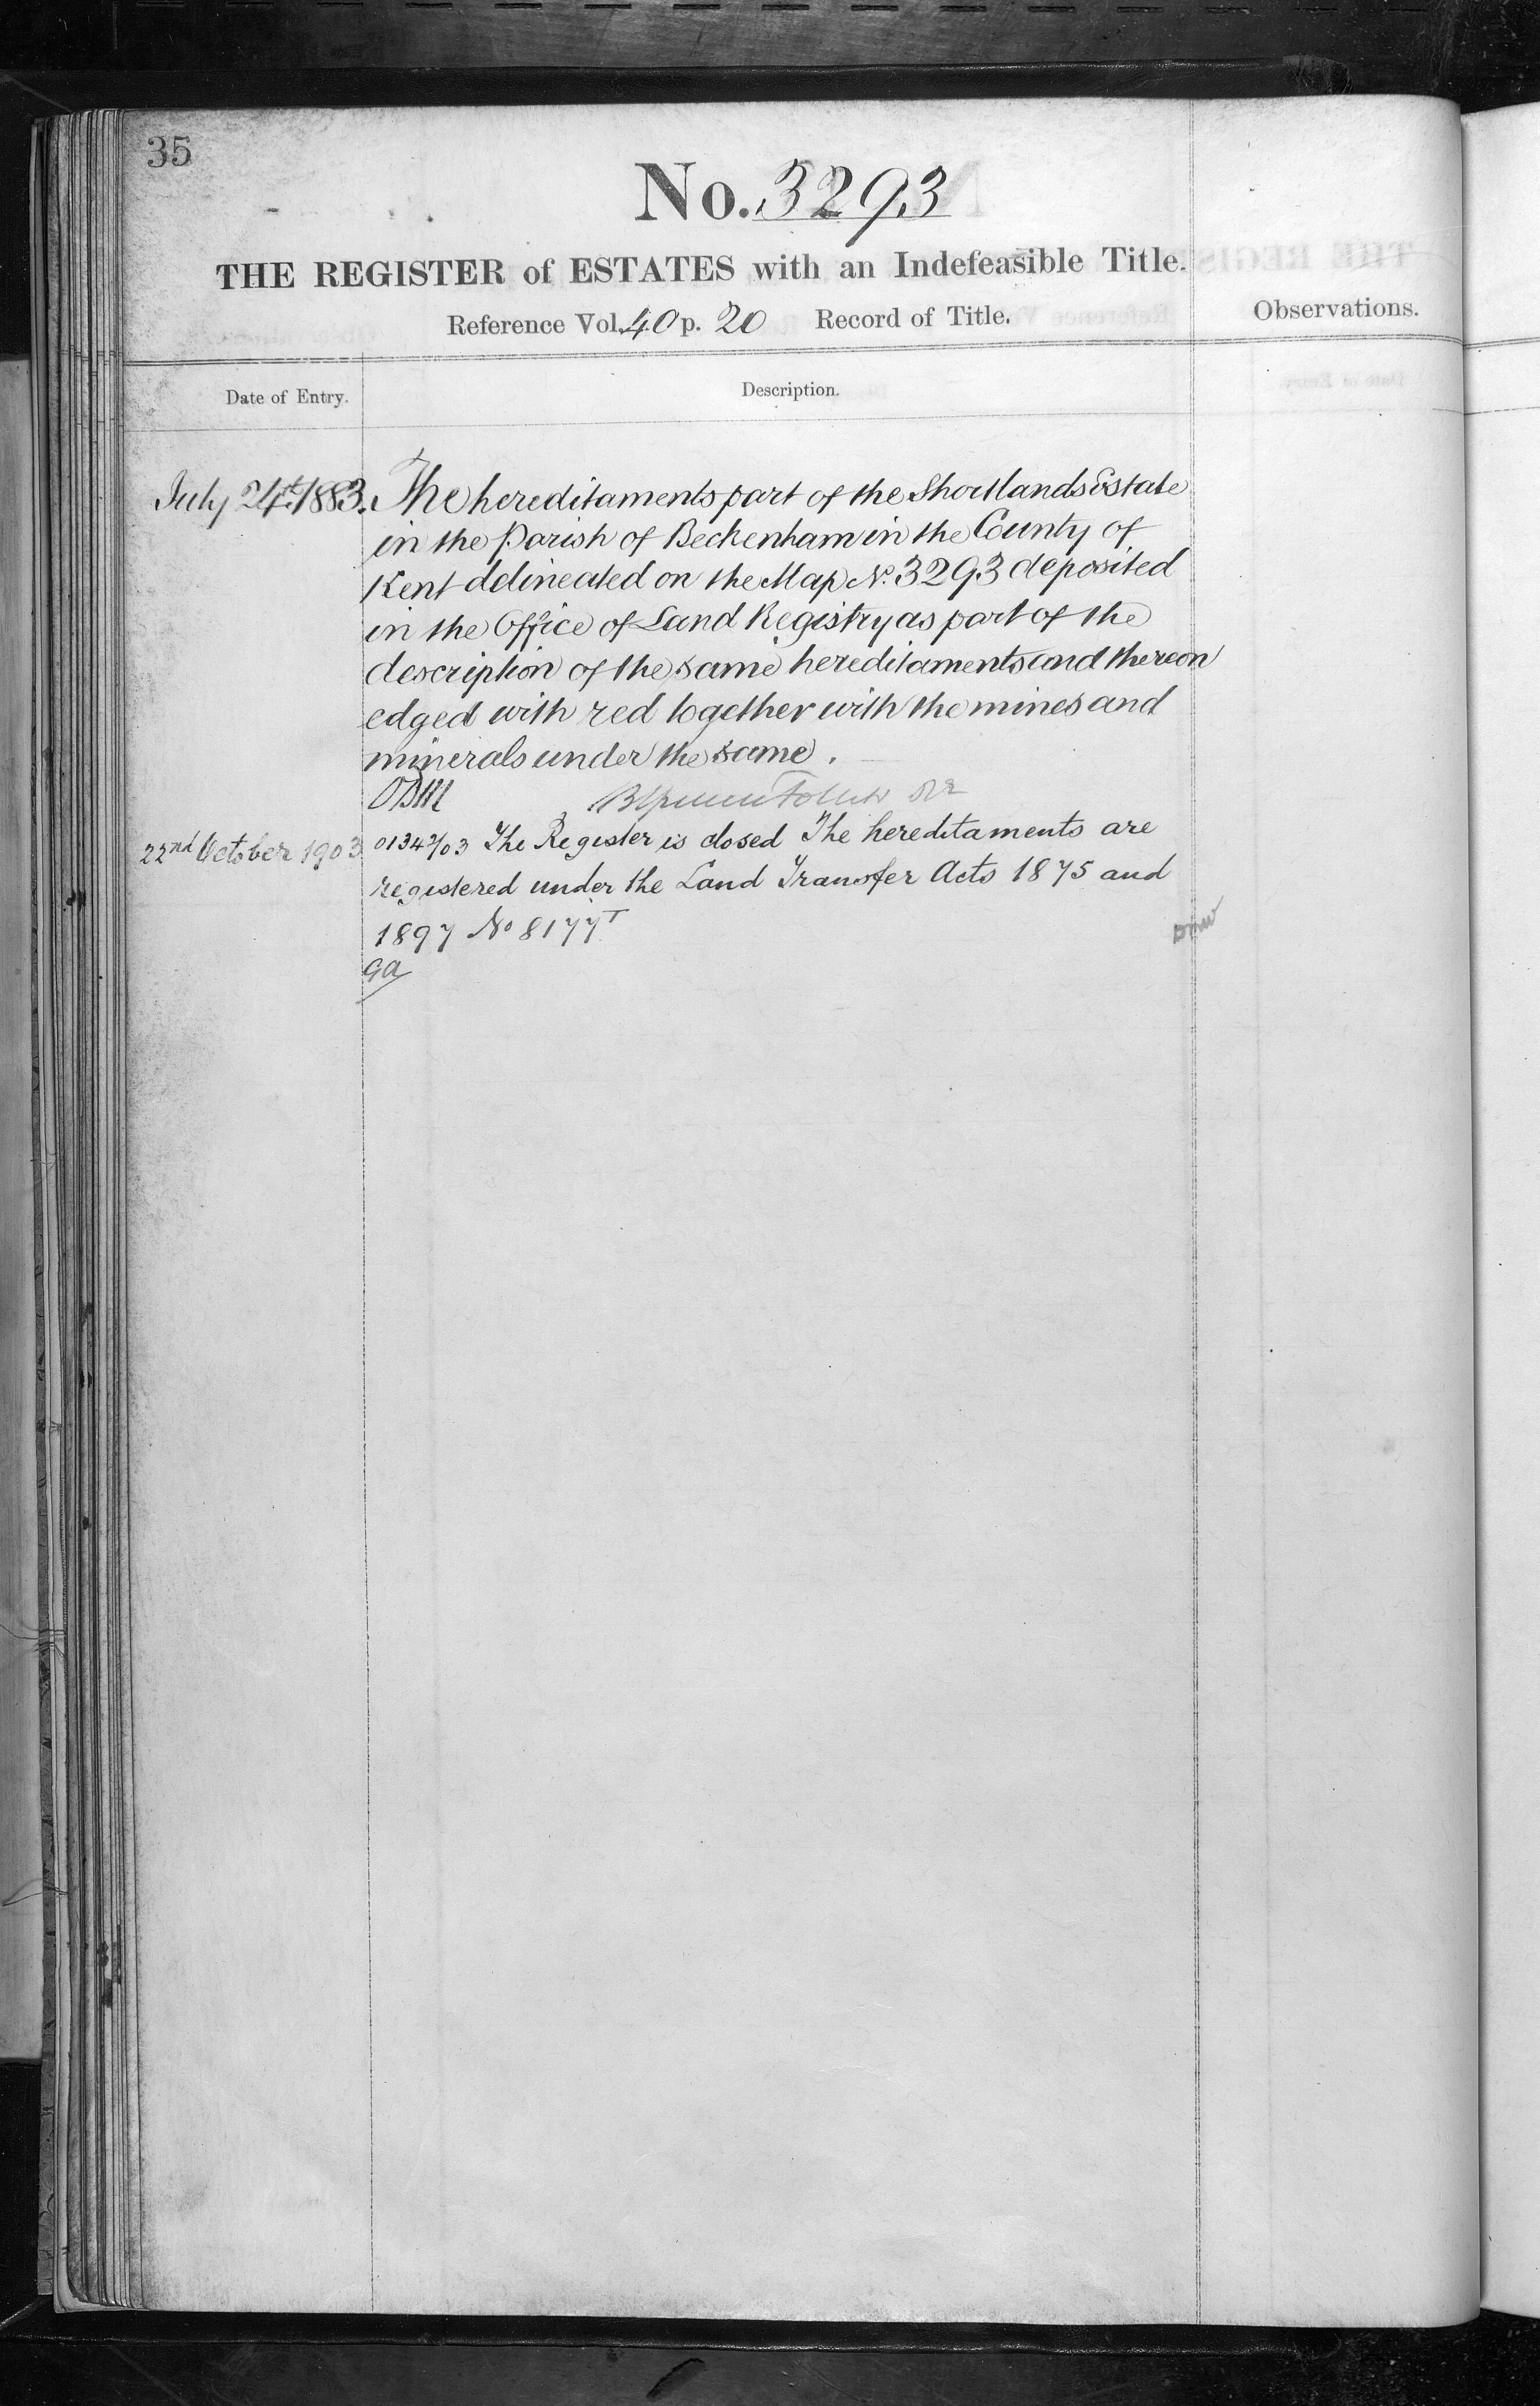 35
No. 3293
THE REGISTER of ESTATES with an Indefeasible Title.
Reference Vol. 40 p. 20 Record of Title.
Observations.
Date of Entry.
Description.
July 24th 1883. The hereditaments part of the Shortlands Estate
in the Parish of Beckenham in the County of
Kent delineated on the Map No. 3293 deposited
in the Office of Land Registry as part of the
description of the same hereditaments and thereon
edged with red together with the mines and
minerals under the same.
22nd October 1903 The Register is closed The hereditaments are
registered under the Land Transfer Acts 1875 and
1897 No 8177T
GA